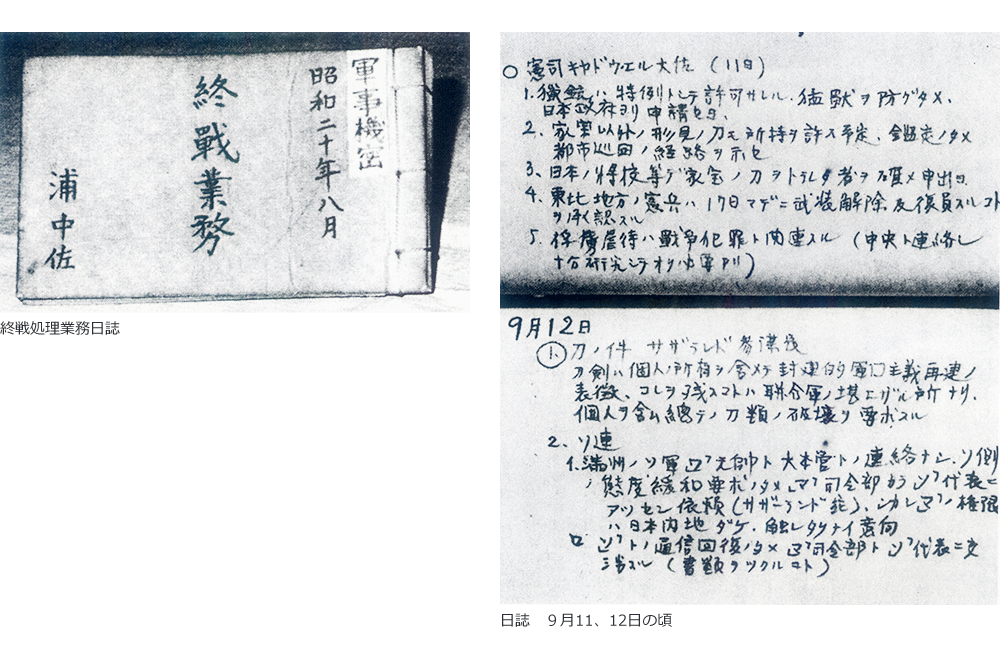 軍事機密
昭和二十年八月
終戰業務
浦中佐
終戦処理業務日誌
○ 憲司キヤドウエル大佐 (11日)
1. 獵銃ハ特例トシテ許可サレル. 猛獣ヲ防グタメ、
日本政府ヨリ申請セヨ.
2、家宝以外ノ形見ノ刀モ所持ヲ許ス予定、鑑定ノタメ
都市巡回ノ経路ヲ示セ
3、日本ノ将校等デ家宝ノ刀ヲトラレタ者ヲ確メ申出ヨ
4、東北地方ノ憲兵ハ17日マデニ武装解除及復員スルコト
ヲ承認スル
5. 俘虜虐待ハ戦争犯罪ト関連スル (中央ト連絡シ
十分研究シテオク必要アリ)
9月12日
1. 刀ノ件 サザランド参謀長
刀剣ハ個人ノ所有ヲ含メテ封建的軍国主義再建ノ
表徴、コレヲ残スコトハ聯合軍ノ堪エザル所ナリ.
個人ヲ含ム總テノ刀類ノ破壊ヲ要求スル
2、ソ連
イ. 満州ノソ軍 元帥ト大本営トノ連絡ナシ. ソ側
ノ態度緩和要求ノタメ 司令部カラ 代表ニ
アッセン依頼 (サザーランド宛)、シカシ ノ権限
ハ日本内地ダケ. 触レタクナイ意向
ロ. トノ通信回復ノタメ 司令部ト 代表ニ交
渉スル (書類ヲツクルコト)
日誌　９月11、12日の頃